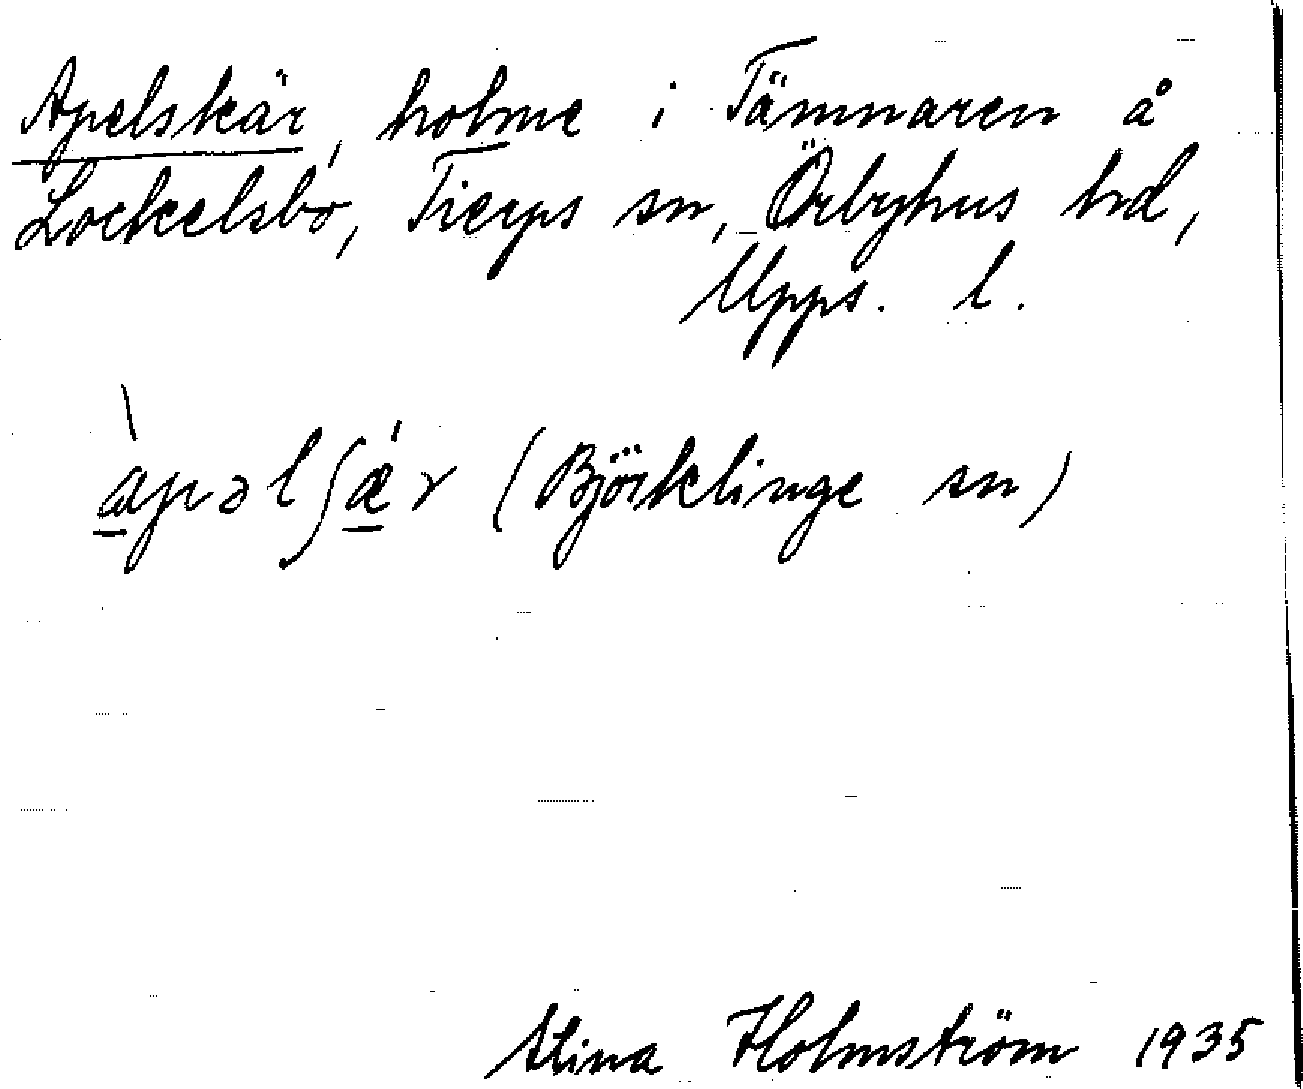 Apelskär, holme i Tämnaren å
Lockelsbo, Tierps sn, Örbyhus hd,
Upps. l.
àpəlʃǽr (Björklinge sn)
Stina Holmström 1935